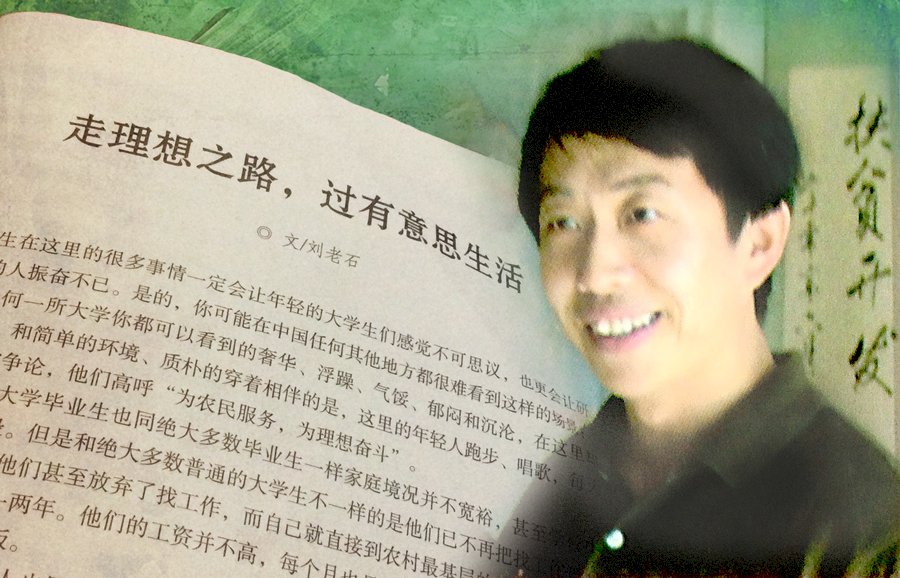 走理想之路，过有意思生活
◎ 文/刘老石
生在这里的很多事情一定会让年轻的大学生们感觉不可思议，也更会让研
的人振奋不已。是的，你可能在中国任何其他地方都很难看到这样的场景
何一所大学你都可以看到的奢华、浮躁、气馁、郁闷和沉沦，在这里
和简单的环境、质朴的穿着相伴的是，这里的年轻人跑步、唱歌，每
争论，他们高呼“为农民服务，为理想奋斗”。
大学毕业生也同绝大多数毕业生一样家庭境况并不宽裕，甚至
。但是和绝大多数普通的大学生不一样的是他们已不再把找
他们甚至放弃了找工作，而自己就直接到农村最基层的
一两年。他们的工资并不高，每个月也
反。
扶贫开发